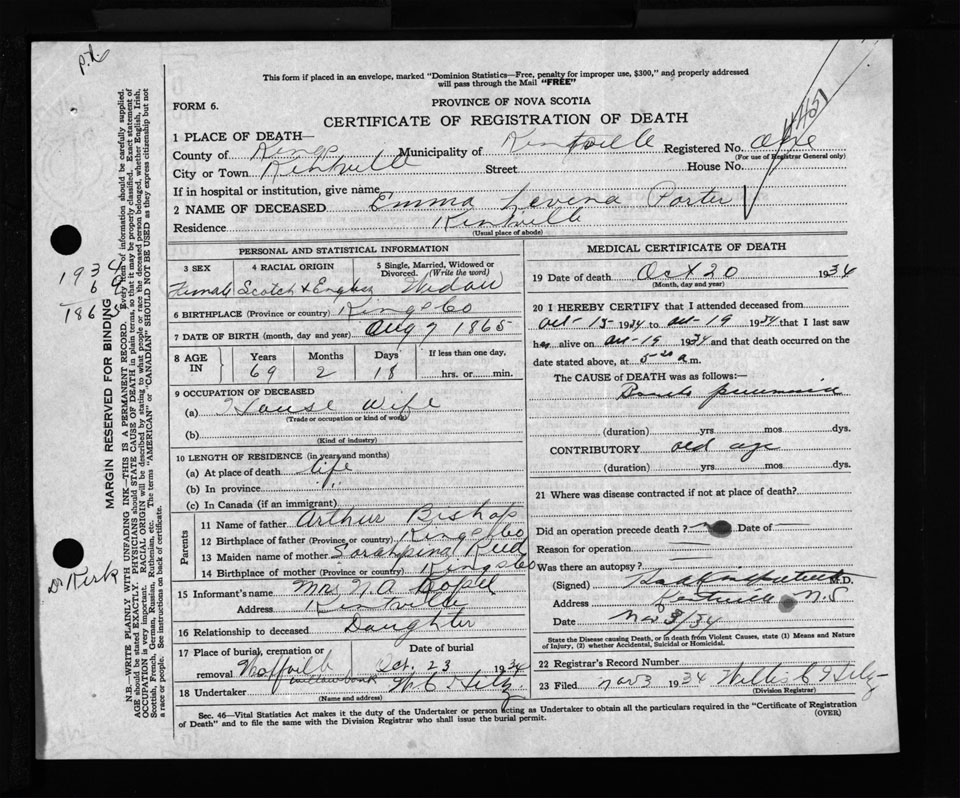 This form if placed in an envelope, marked "Dominion Statistics—Free, penalty for improper use, $300," and properly addressed
will pass through the Mail "FREE"
FORM 6.
PROVINCE OF NOVA SCOTIA
CERTIFICATE OF REGISTRATION OF DEATH
1 PLACE OF DEATH—
County of Kings Municipality of Kentville Registered No.
(For use of Registrar General only)
City or Town Kentville Street House No.
If in hospital or institution, give name
2 NAME OF DECEASED Emma Levena Porter
Residence Kentville
(Usual place of abode)
PERSONAL AND STATISTICAL INFORMATION
3 SEX 4 RACIAL ORIGIN 5 Single, Married, Widowed or Divorced. (Write the word)
Female Scotch & English Widow
6 BIRTHPLACE (Province or country) Kings Co
7 DATE OF BIRTH (month, day and year) Aug 7 1865
8 AGE IN Years Months Days If less than one day,
69 2 18 hrs. or min.
9 OCCUPATION OF DECEASED
(a) House Wife
(Trade or occupation or kind of work)
(b)
(Kind of industry)
10 LENGTH OF RESIDENCE (in years and months)
(a) At place of death life
(b) In province " "
(c) In Canada (if an immigrant)
Parents
11 Name of father Arthur Bishop
12 Birthplace of father (Province or country) Kings Co
13 Maiden name of mother Reid
14 Birthplace of mother (Province or country) Kings Co
15 Informant's name Mrs N.A.
Address Kentville
16 Relationship to deceased Daughter
17 Place of burial, cremation or removal Date of burial
Wolfville Oct. 23 1934
18 Undertaker W C
(Name and address)
MEDICAL CERTIFICATE OF DEATH
19 Date of death Oct 20 1934
(Month, day and year)
20 I HEREBY CERTIFY that I attended deceased from
Oct-15-1934 to Oct-19 1934 that I last saw
her alive on Oct-19 1934 and that death occurred on the
date stated above, at a.m.
The CAUSE of DEATH was as follows:—
pneumonia
(duration) yrs mos dys.
CONTRIBUTORY old age
(duration) yrs. mos. dys.
21 Where was disease contracted if not at place of death?
Did an operation precede death? Date of —
Reason for operation
Was there an autopsy?
(Signed) M.D.
Address Kentville N.S
Date Nov 3/34
State the Disease causing Death, or in death from Violent Causes, state (1) Means and Nature
of Injury, (2) whether Accidental, Suicidal or Homicidal.
22 Registrar's Record Number
23 Filed Nov 3 1934 Willis C
(Division Registrar)
Sec. 46—Vital Statistics Act makes it the duty of the Undertaker or person acting as Undertaker to obtain all the particulars required in the "Certificate of Registration
of Death" and to file the same with the Division Registrar who shall issue the burial permit.
(OVER)
MARGIN RESERVED FOR BINDING
N.B.—WRITE PLAINLY WITH UNFADING INK—THIS IS A PERMANENT RECORD. Every item of information should be carefully supplied.
AGE should be stated EXACTLY. PHYSICIANS should STATE CAUSE OF DEATH in plain terms, so that it may be properly classified. Exact statement of
OCCUPATION is very important. RACIAL ORIGIN will be described by stating to what people or race the deceased person belonged, whether English, Irish,
Scottish, French, German, Russian, Ruthenian, etc. The terms "AMERICAN" or "CANADIAN" SHOULD NOT BE USED as they express citizenship but not
a race or people. See instructions on back of certificate.
1934
Dr Kirk